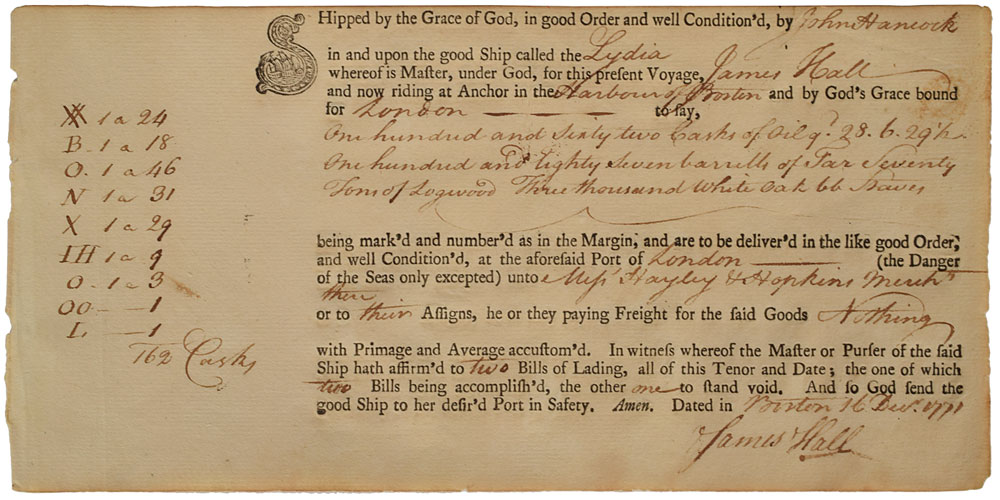 SHipped by the Grace of God, in good Order and well Condition'd, by John Hancock
in and upon the good Ship called the Lydia
whereof is Master, under God, for this present Voyage, James Hall
and now riding at Anchor in the Harbour of Boston and by God's Grace bound
for London to say,
One hundred and Sixty two Casks of Oil qᵗ 28. 6. 29½
One hundred and eighty Seven barrells of Tar Seventy
Tons of Logwood Three thousand White Oak bb Staves
1 a 24
B. 1 a 18
O. 1 a 46
N 1 a 31
X 1 a 29
IH 1 a 9
O - 1 a 3
OO - - 1
L - - 1
162 Casks
being mark'd and number'd as in the Margin; and are to be deliver'd in the like good Order,
and well Condition'd, at the aforesaid Port of London (the Danger
of the Seas only excepted) unto Messʳˢ Hayley & Hopkins Merchᵗˢ
there
or to their Assigns, he or they paying Freight for the said Goods Nothing
with Primage and Average accustom'd. In witness whereof the Master or Purser of the said
Ship hath affirm'd to two Bills of Lading, all of this Tenor and Date; the one of which
two Bills being accomplish'd, the other one to stand void. And so God send the
good Ship to her desir'd Port in Safety. Amen. Dated in Boston 16 Decʳ. 1771
James Hall